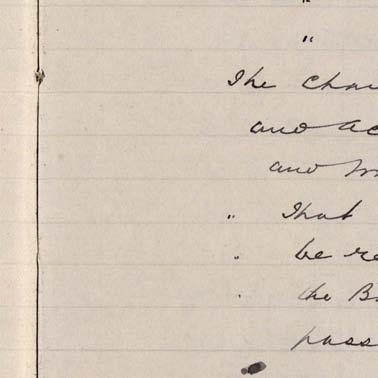 "
The Chai
and ac
and m
" That
be re
the B
pass